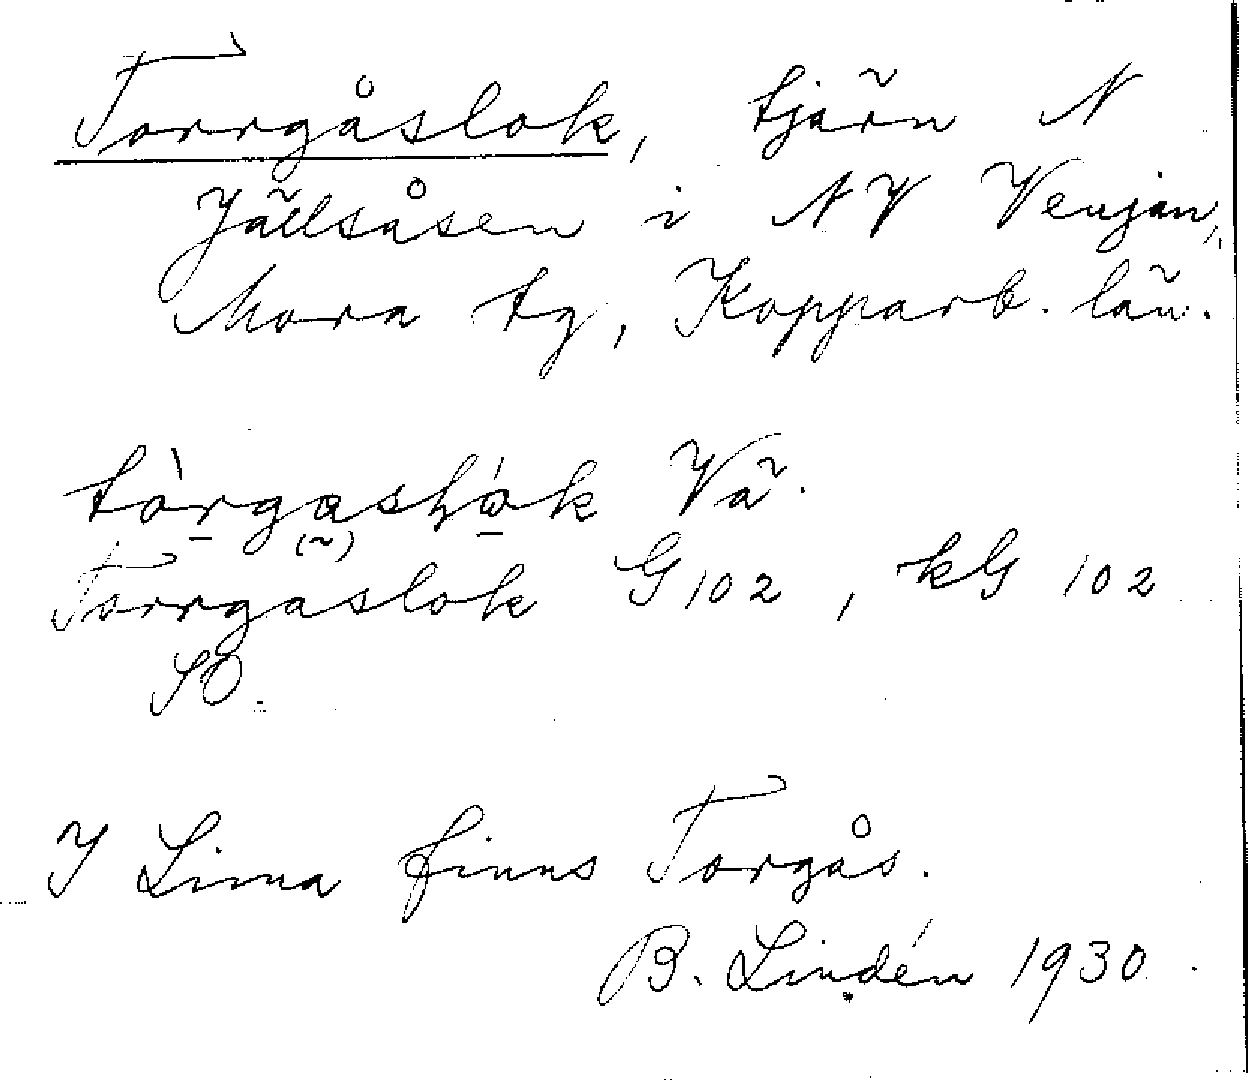 Torrgåslok, tjärn N
Jällsåsen i NV Venjan,
Mora tg, Kopparb. län.
Vä.
Torrgäslok G 102, kG 102
SO.
I Lima finns Torgås.
B. Lindén 1930